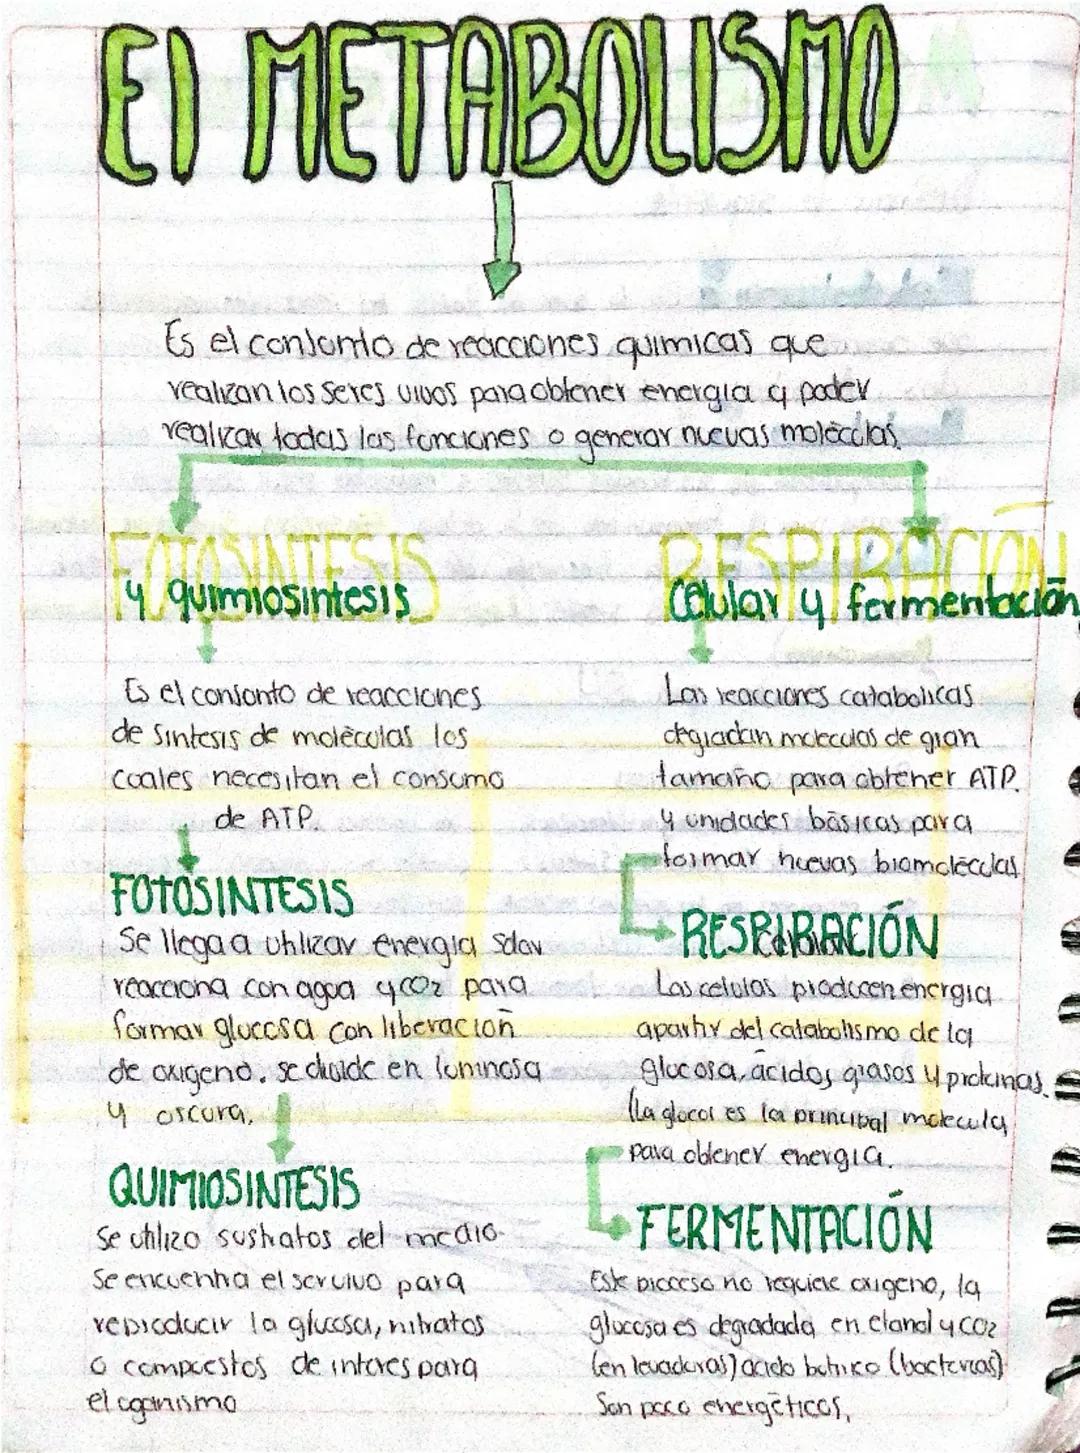 El METABOLISMO
Es el conjunto de reacciones químicas que
realizan los seres vivos para obtener energía y poder
realizar todas las funciones o generar nuevas molèculas.
FOTOSINTESIS
y quimiosintesis
Es el conjunto de reacciones
de sintesis de molèculas los
cuales necesitan el consumo
de ATP.
FOTOSINTESIS
Se llega a utilizar energia solar
reacciona con agua y CO2 para
formar glucosa con liberación
de oxigeno. se divide en luminosa
y oscura.
QUIMIOSINTESIS
Se utilizo sustratos del medio
Se encuentra el ser vivo para
reproducir la glucosa, nitratos
o compuestos de interes para
el oganismo
RESPIRACIÓN
Celular y fermentación
Las reacciones catabolicas
degradan moleculas de gran
tamaño para obtener ATP.
y unidades básicas para
formar nuevas biomolèculas
RESPIRACIÓN
Celular
Las celulas producen energia
apartir del catabolismo de la
glucosa, ácidos grasos y proteinas.
(La glucos es la principal molecula
para obtener energia.
FERMENTACIÓN
Este proceso no requiere oxigeno, la
glucosa es degradada en etanol y CO2
(en levaduras) acido butirico (bacterias)
Son poco energéticos.